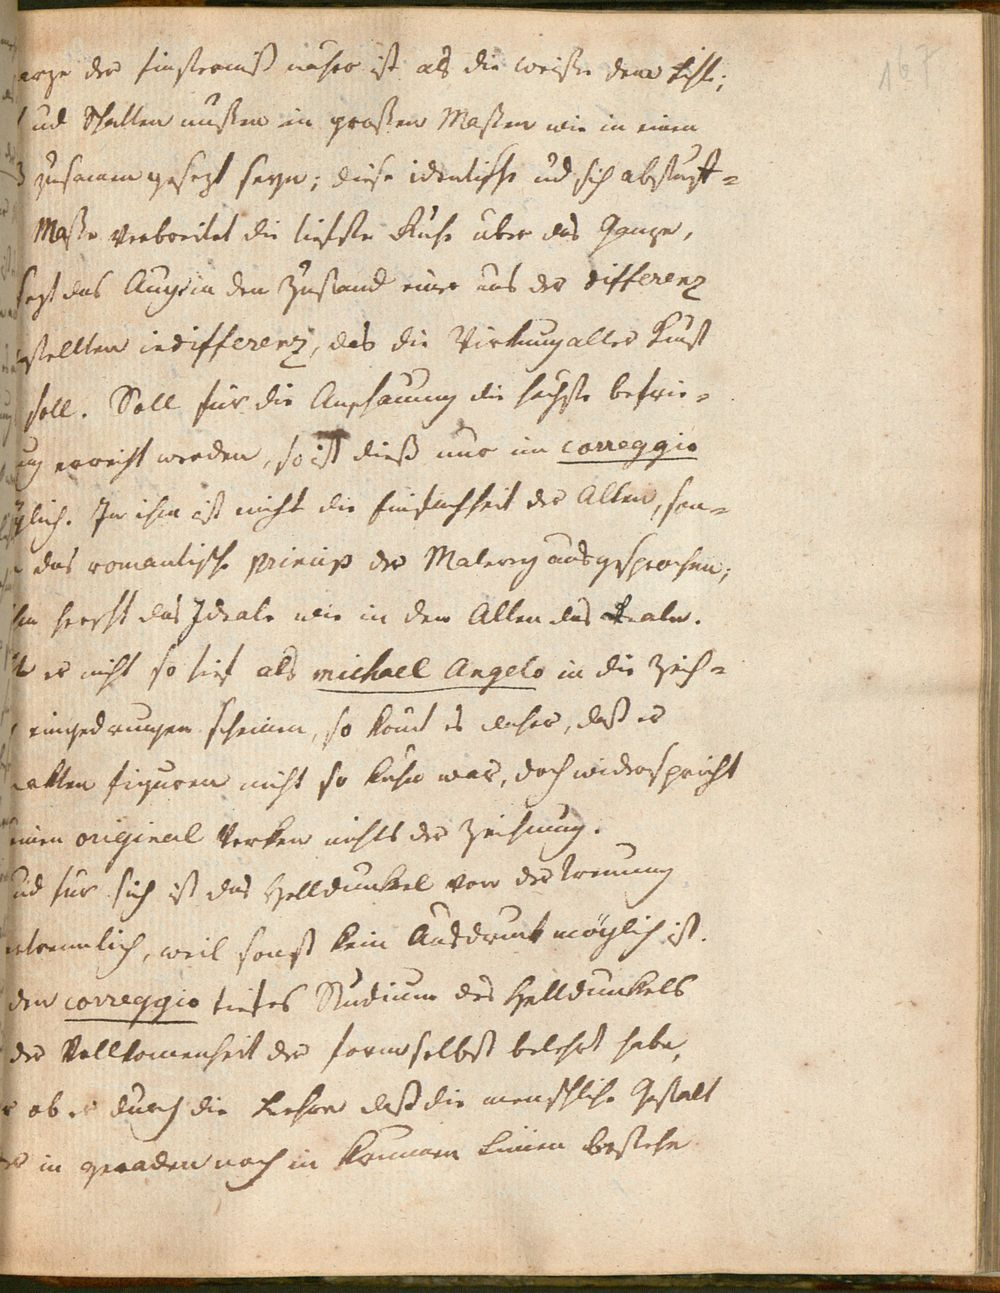 167
arze der Finsterniß näher ist als die weiße dem Licht;
ud Schatten müßen in großen Maßen wie in einen
zusamengesezt seyn; diese identische ud sich abstuff-
Maße verbreitet die tiefste Ruhe über das Ganze,
sezt das Auge in den Zustand einer aus der differenz
stellten indifferenz, das die Wirkung aller Kunst
soll. Soll für die Anschauung die höchste befrie-
ug erreicht werden, so ist dieß nur im Correggio
glich. In ihm ist nicht die Einfachheit der Alten, son-
das romantische Princip der Malerey ausgesprochen;
ihm herscht das Ideale wie in den Alten das Reale.
er nicht so tief als michael Angelo in die Zeich-
eingedrungen scheinen, so komt es daher, daß er
akten figuren nicht so kühn war, doch widerspricht
einen original Werken nichts der Zeichnung.
ud für sich ist das Helldunkel von der Trennung
ertrennlich, weil sonst kein Ausdruck möglich ist.
den correggio tiefes Studium des Helldunkels
der Vollkomenheit der form selbst belehrt habe,
ob er durch die Lehre daß die menschliche Gestalt
er in geraden noch in krummen Linien bestehe